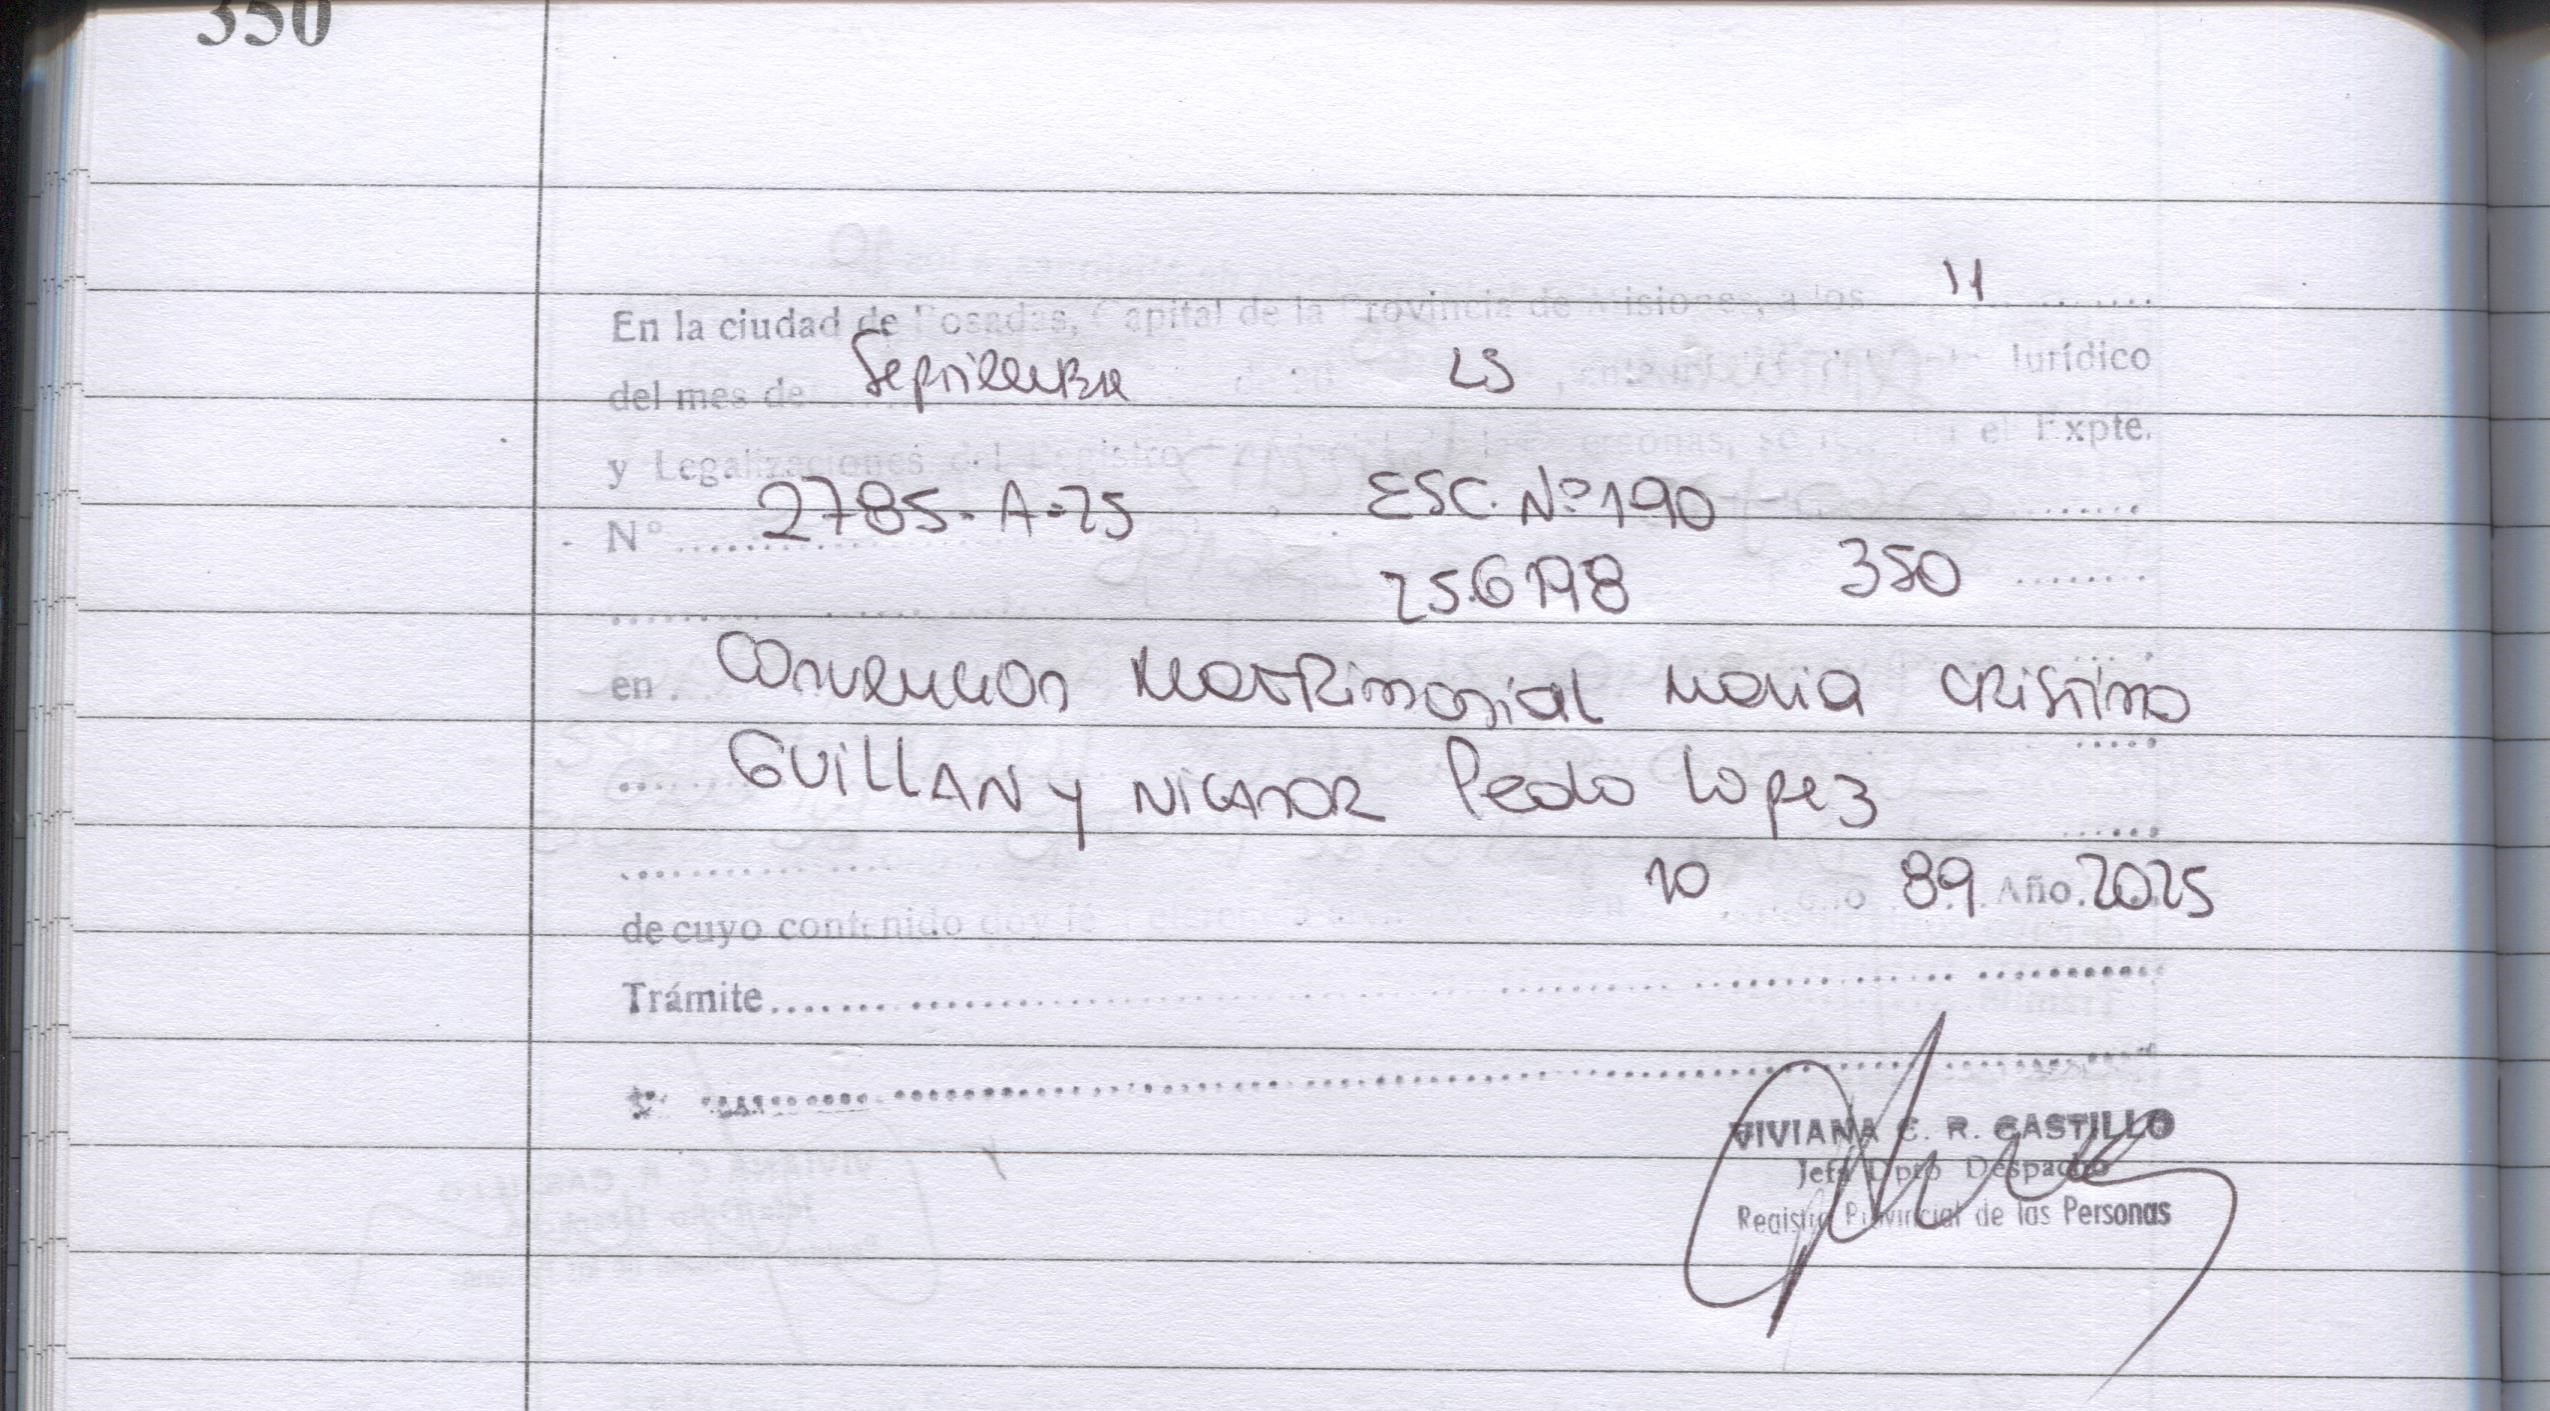 350
11
En la ciudad de Posadas, Capital de la Provincia de Misiones, a los
Septiembre 25
del mes de Jurídico
y Legalizaciones del Registro personas, se el Expte.
2785-A-25 ESC. Nº 190
Nº
256198 350
en Convencion Matrimonial Maria Cristina
Guillan y Nicanor Pedro Lopez
10 89 Año 2025
de cuyo contenido doy fé
Trámite
VIVIANA C. R. CASTILLO
Jefa Dpto Despacho
Registro Provincial de las Personas